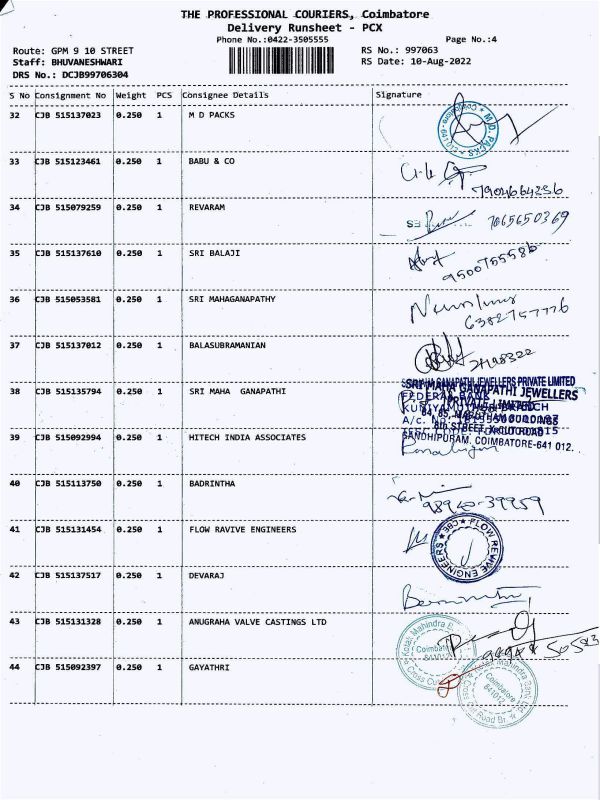 THE PROFESSIONAL COURIERS, Coimbatore
Delivery Runsheet - PCX
Phone No.:0422-3505555 Page No.:4
Route: GPM 9 10 STREET RS No.: 997063
Staff: BHUVANESHWARI RS Date: 10-Aug-2022
DRS No.: DCJB99706304
S No Consignment No Weight PCS Consignee Details Signature
32 CJB 515137023 0.250 1 M D PACKS
M.D. PACKS
33 CJB 515123461 0.250 1 BABU & CO
7904664236
34 CJB 515079259 0.250 1 REVARAM
7065650369
35 CJB 515137610 0.250 1 SRI BALAJI
9500755586
36 CJB 515053581 0.250 1 SRI MAHAGANAPATHY
6382757776
37 CJB 515137012 0.250 1 BALASUBRAMANIAN
38 CJB 515135794 0.250 1 SRI MAHA GANAPATHI
SRI MAHA GANAPATHI JEWELLERS PRIVATE LIMITED
SRI MAHA GANAPATHI JEWELLERS
PRIVATE LIMITED
FEDERAL BANK
8th STREET, X-CUT ROAD
GANDHIPURAM, COIMBATORE-641 012.
39 CJB 515092994 0.250 1 HITECH INDIA ASSOCIATES
40 CJB 515113750 0.250 1 BADRINTHA
98940-39959
41 CJB 515131454 0.250 1 FLOW RAVIVE ENGINEERS
FLOW REVIVE ENGINEERS CBE
42 CJB 515137517 0.250 1 DEVARAJ
43 CJB 515131328 0.250 1 ANUGRAHA VALVE CASTINGS LTD
Kotak Mahindra B
Coimbatore
44 CJB 515092397 0.250 1 GAYATHRI
Kotak Mahindra Bank Ltd
Coimbatore
641012
Cross Cut Road Br.